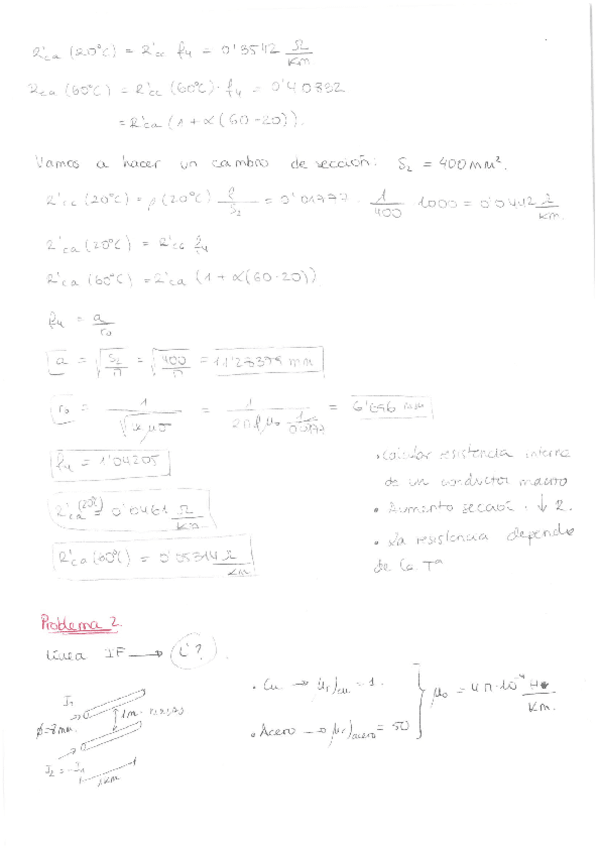 R'ca (20ºC) = R'cc fu = 0'3542 Ω/Km
Rca (60ºC) = R'cc (60ºC) · fu = 0'40332
= R'ca (1 + α(60-20)).
Vamos a hacer un cambio de sección: S₂ = 400 mm².
R'cc (20ºC) = ρ(20ºC) ℓ/S₂ = 0'01777 · 1/400 · 1000 = 0'0442 Ω/Km.
R'ca (20ºC) = R'cc fu
R'ca (60ºC) = R'ca (1 + α(60-20))
fu = a/r₀
a = √(S₂/π) = √(400/π) = 11'28379 mm
r₀ = 1/√ = 1/ = mm
fu = 1'04205
R'ca (20º) = 0'0461 Ω/Km
R'ca (60ºC) = 0'05314 Ω/Km
• Calcular resistencia interna
de un conductor macizo
• Aumento sección · ↓ R.
• La resistencia depende
de la Tª
Problema 2.
Línea 1F → L'?
I₁
φ=8mm.
1m.
I₂ = -I₁
1Km
• Cu → μr)cu = 1.
• Acero → μr)acero = 50
μ₀ = 4π·10⁻⁴ H/Km.